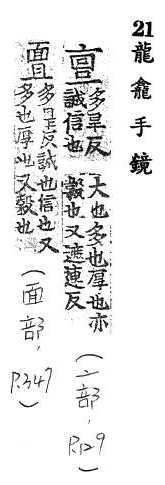 21龍龕手鏡
亶 多旱反
誠信也
大也多也厚也亦
穀也又遮連反
(亠部, P.129)
多旱反誠也信也又
多也厚也又穀也
(面部, P.347)